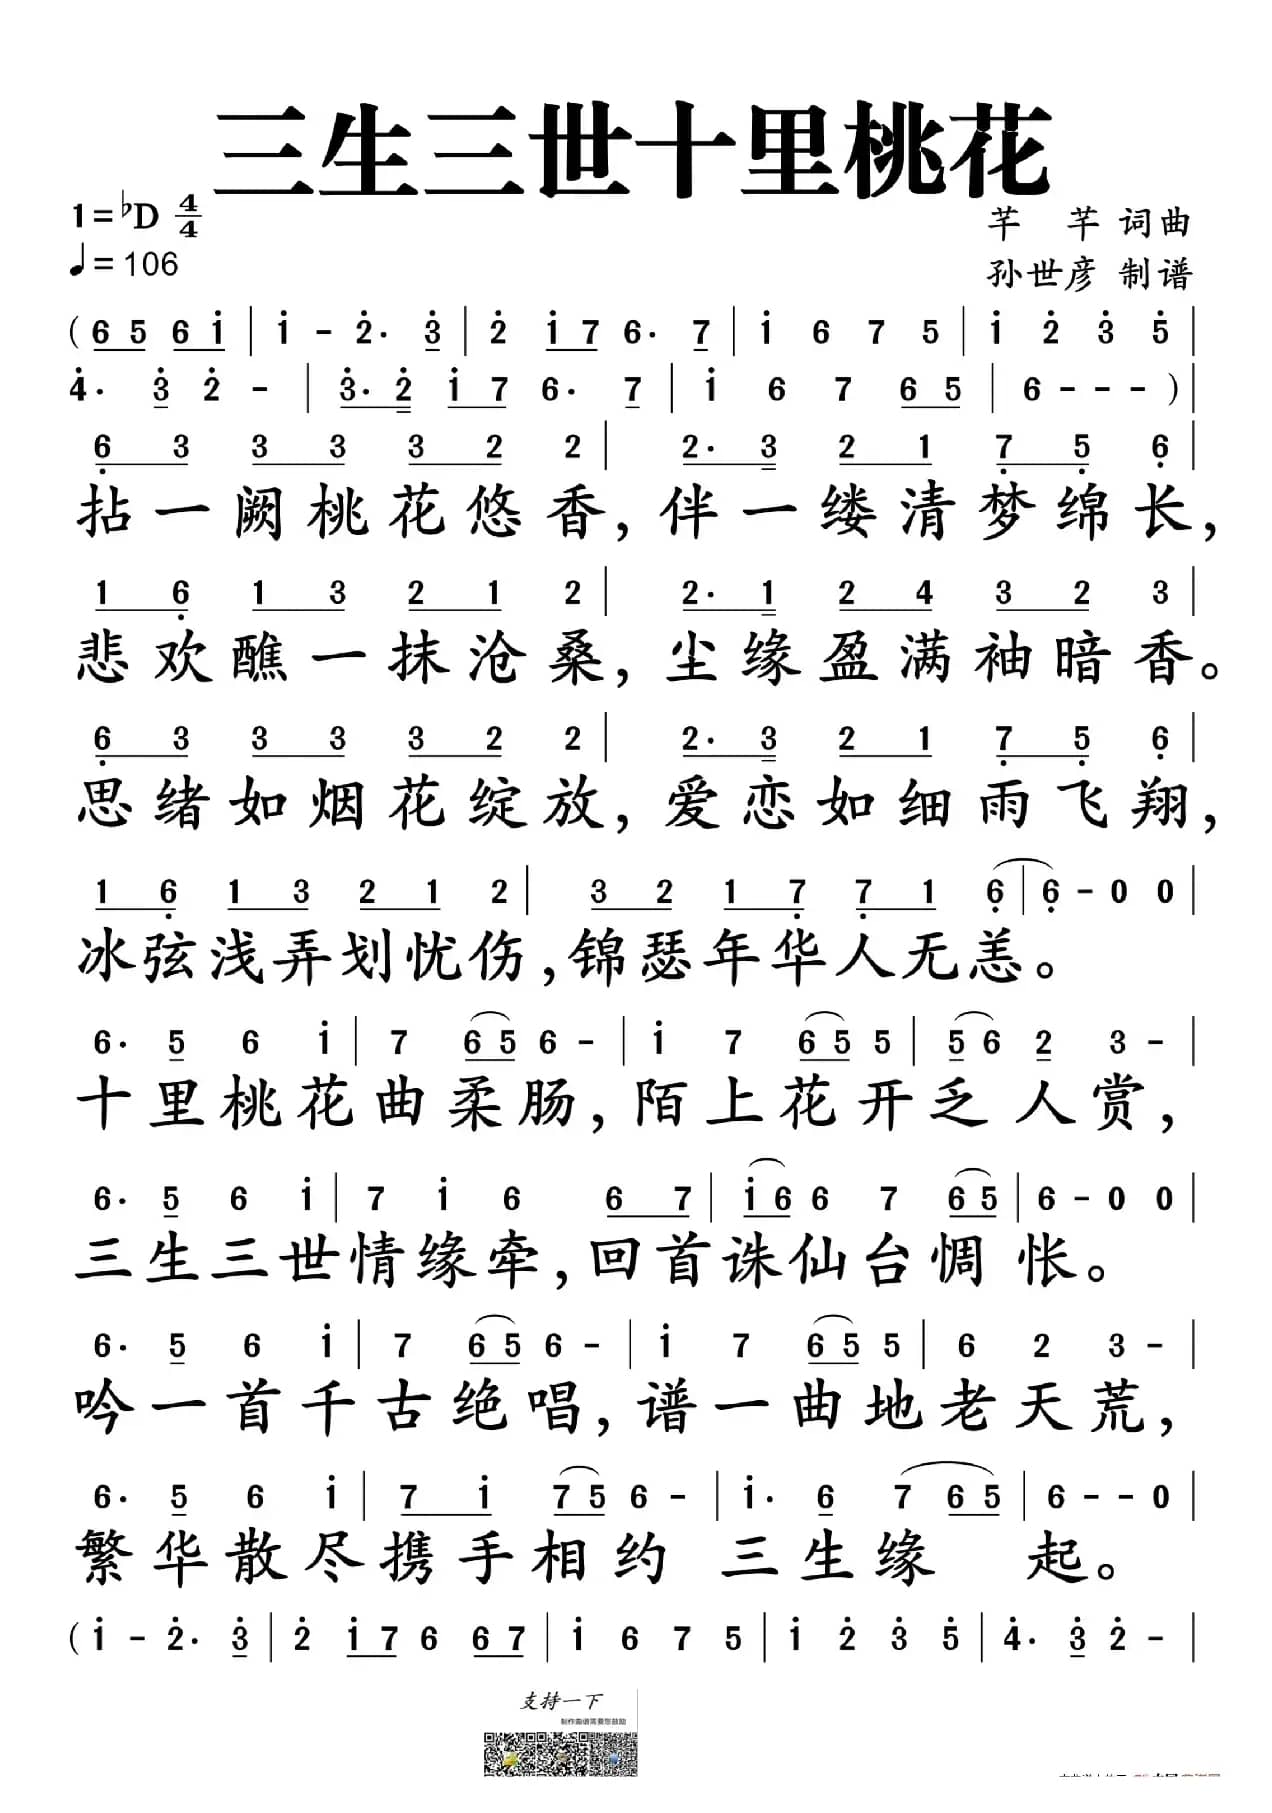 三生三世十里桃花
1=♭D 4/4
芊 芊 词曲
♩=106
孙世彦 制谱
( 6 5 6 i | i - 2̇· 3̇ | 2̇ i 7 6· 7 | i 6 7 5 | i 2̇ 3̇ 5̇ |
4̇· 3̇ 2̇ - | 3̇· 2̇ i 7 6· 7 | i 6 7 6 5 | 6 - - - ) |
6̣ 3 3 3 3 2 2 | 2· 3 2 1 7̣ 5̣ 6̣ |
拈一阙桃花悠香,伴一缕清梦绵长,
1 6̣ 1 3 2 1 2 | 2· 1 2 4 3 2 3 |
悲欢醮一抹沧桑,尘缘盈满袖暗香。
6̣ 3 3 3 3 2 2 | 2· 3 2 1 7̣ 5̣ 6̣ |
思绪如烟花绽放,爱恋如细雨飞翔,
1 6̣ 1 3 2 1 2 | 3 2 1 7̣ 7̣ 1 6̣ | 6̣ - 0 0 |
冰弦浅弄划忧伤,锦瑟年华人无恙。
6· 5 6 i | 7 6 5 6 - | i 7 6 5 5 | 5 6 2 3 - |
十里桃花曲柔肠,陌上花开乏人赏,
6· 5 6 i | 7 i 6 6 7 | i 6 6 7 6 5 | 6 - 0 0 |
三生三世情缘牵,回首诛仙台惆 怅。
6· 5 6 i | 7 6 5 6 - | i 7 6 5 5 | 6 2 3 - |
吟一首千古绝唱,谱一曲地老天荒,
6· 5 6 i | 7 i 7 5 6 - | i· 6 7 6 5 | 6 - - 0 |
繁华散尽携手相约 三生缘 起。
( i - 2̇· 3̇ | 2̇ i 7 6 6 7 | i 6 7 5 | i 2̇ 3̇ 5̇ | 4̇· 3̇ 2̇ - |
支持一下
制作曲谱需要您鼓励